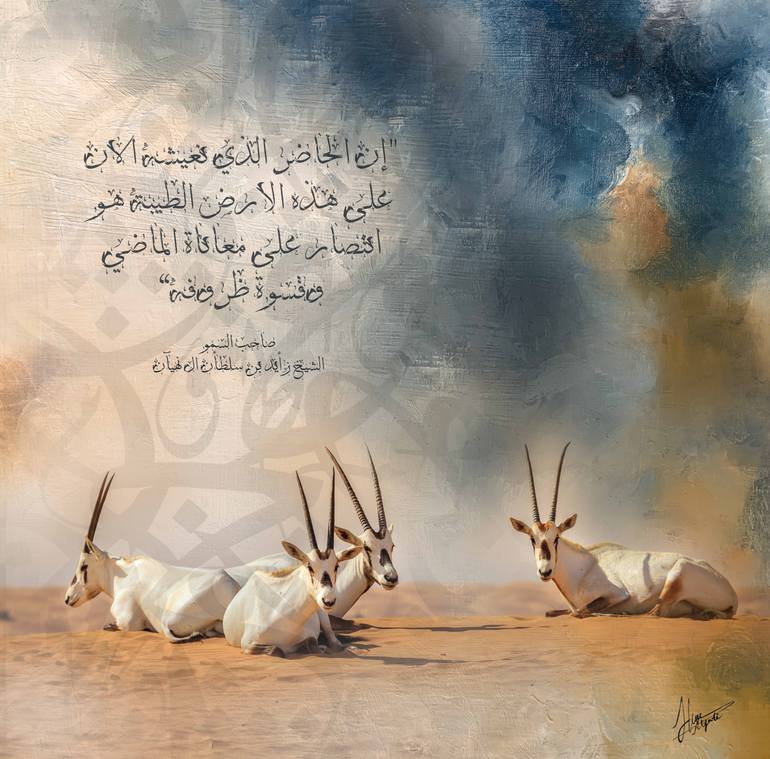 "إن الحاضر الذي نعيشه الآن
على هذه الأرض الطيبة هو
انتصار على معاناة الماضي
وقسوة ظروفه“
صاحب السمو
الشيخ زايد بن سلطان آل نهيان